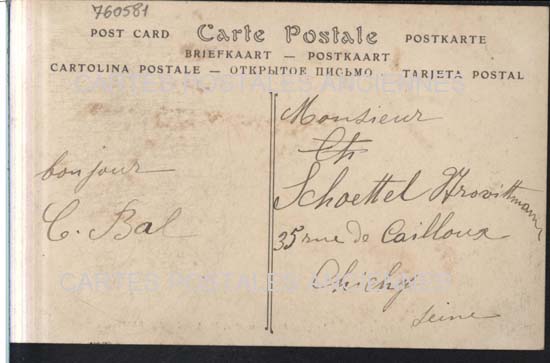 760581
Carte Postale
POST CARD
POSTKARTE
BRIEFKAART — POSTKAART
CARTOLINA POSTALE — ОТКРЫТОЕ ПИСЬМО — TARJETA POSTAL
CARTES POSTALES ANCIENNES
bonjour
C. Bal
Monsieur
Ch
Schoettel
35 rue de Cailloux
Clichy
Seine
CARTES POSTALES ANCIENNES